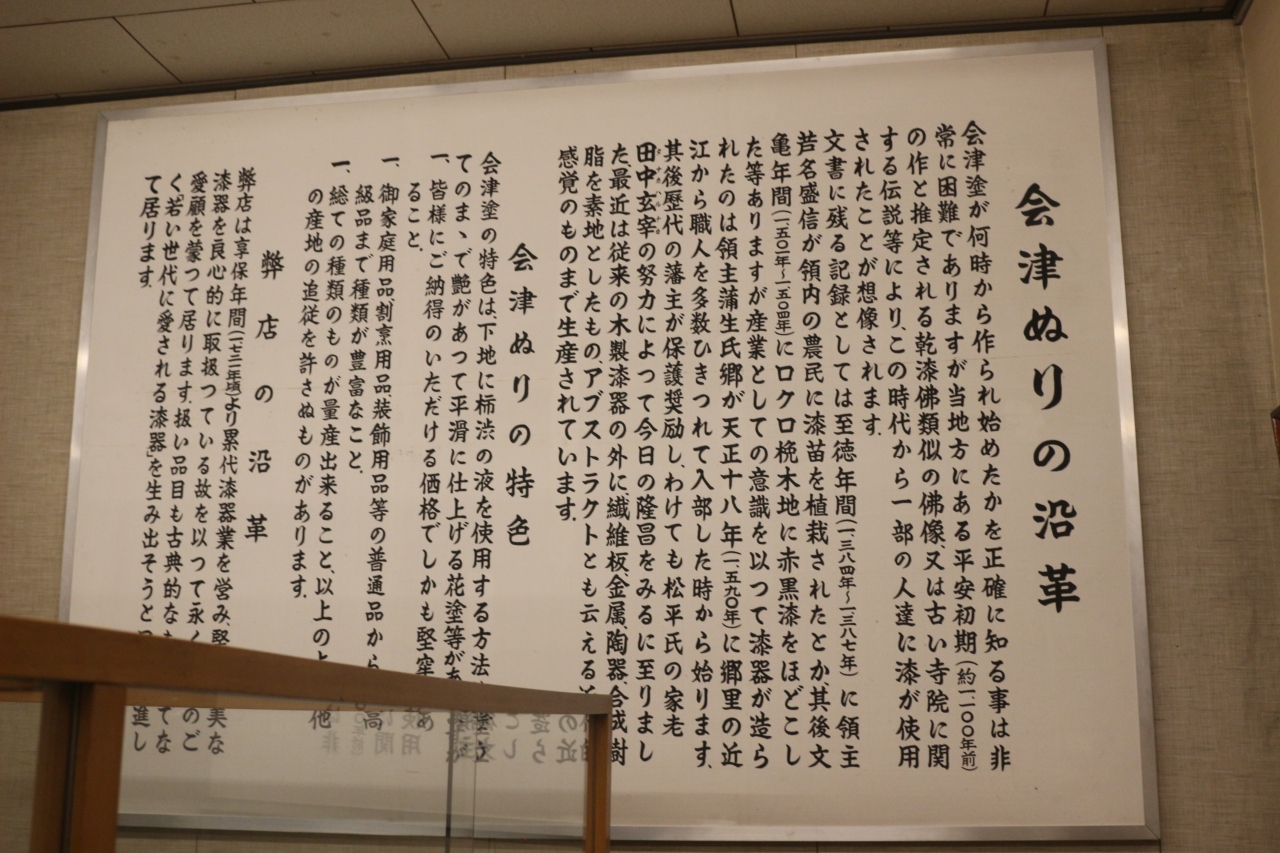 会津ぬりの沿革
会津塗が何時から作られ始めたかを正確に知る事は非
常に困難でありますが当地方にある平安初期(約一、一〇〇年前)
の作と推定される乾漆佛類似の佛像、又は古い寺院に関
する伝説等により、この時代から一部の人達に漆が使用
されたことが想像されます。
文書に残る記録としては至徳年間(一、三八四年〜一、三八七年)に領主
芦名盛信が領内の農民に漆苗を植栽されたとか、其後文
亀年間(一、五〇一年〜一、五〇四年)にロクロ挽木地に赤黒漆をほどこし
た等ありますが産業としての意識を以つて漆器が造ら
れたのは領主蒲生氏郷が天正十八年(一、五九〇年)に郷里の近
江から職人を多数ひきつれて入部した時から始ります。
其後歴代の藩主が保護奨励し、わけても松平氏の家老
田中玄宰の努力によつて今日の隆昌をみるに至りまし
た、最近は従来の木製漆器の外に繊維板、金属、陶器、合成樹
脂を素地としたもの、アブストラクトとも云える
感覚のものまで生産されています。
会津ぬりの特色
会津塗の特色は、下地に柿渋の液を使用する方法
てのまゝ艶があつて平滑に仕上げる花塗等が
一、皆様にご納得のいただける価格でしかも堅牢
ること。
一、御家庭用品割烹用品装飾用品等の普通品から高
級品まで種類が豊富なこと。
一、総ての種類のものが量産出来ること、以上の 他
の産地の追従を許さぬものがあります。
弊店の沿革
弊店は享保年間(一、七二一年頃)より累代漆器業を営み、堅 美な
漆器を良心的に取扱つている故を以つて永く のご
愛顧を蒙つて居ります。扱い品目も古典的な てな
く「若い世代に愛される漆器」を生み出そうと 進し
て居ります。